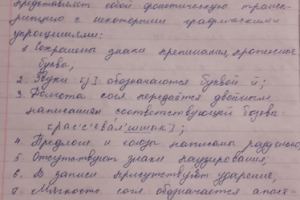 представляют собой фонетическую транск-
рипцию с некоторыми графическими
упрощениями:
1. Сохранены знаки препинания, прописные
буквы,
2. Звуки [j] обозначаются буквой й;
3. Долгота согл передаётся двойным
написанием соответствующей
4. Предлоги и союзы написаны раздельно
5. Отсутствуют знаки паузирования;
6. В записи присутствуют ударения,
7. Мягкость согл обозначается апост-